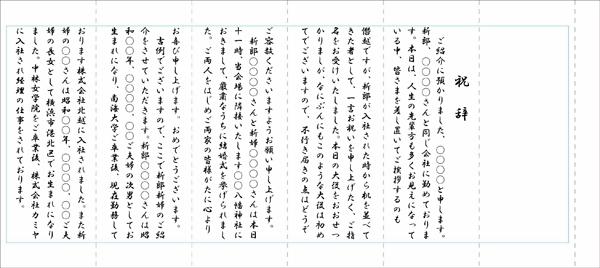 祝辞
ご紹介に預かりました、〇〇〇〇と申します。
新郎、〇〇〇〇さんと同じ会社に勤めております。本日は、人生の先輩方も多くお見えになっている中、皆さまを差し置いてご挨拶するのも
僭越ですが、新郎が入社された時から机を並べてきた者として、一言お祝いを申し上げたく、ご指名をお受けいたしました。本日の大役をおおせつかりましが、なにぶんにもこのような大役は初めてでございますので、不行き届きの点はどうぞ
ご容赦くださいますようお願い申し上げます。
新郎〇〇〇〇さんと新婦〇〇〇〇さんは本日十一時、当会場に隣接いたします〇〇八幡神社におきまして、厳粛なうちに結婚式を挙げられました。ご両人をはじめご両家の皆様がたに心より
お喜び申し上げます。おめでとうございます。
吉例でございますので、ここで新郎新婦のご紹介をさせていただきます。新郎〇〇〇〇さんは昭和〇〇年、〇〇〇〇、〇〇ご夫妻の次男としてお生まれになり、南海大学ご卒業後、現在勤務して
おります株式会社北越に入社されました。また新婦の〇〇さんは昭和〇〇年、〇〇〇〇、〇〇ご夫婦の長女として横浜市港北区でお生まれになりました。中林女学院をご卒業後、株式会社カミヤに入社され経理の仕事をされております。